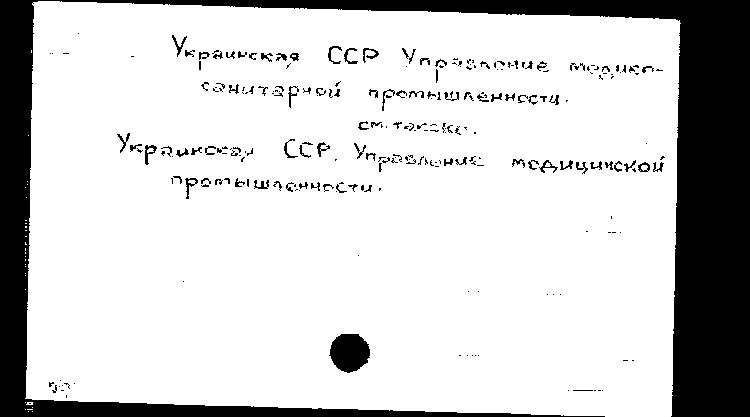 Украинская ССР Управление медико-
санитарной промышленности.
см. также.
Украинская ССР. Управление медицинской
промышленности.